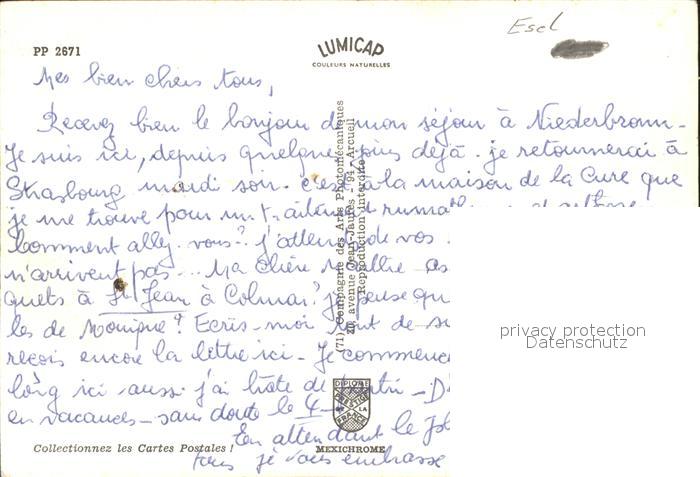 Esel
PP 2671
LUMICAP
COULEURS NATURELLES
Mes bien chers tous,
Recevez bien le bonjour de mon séjour à Niederbronn-
Je suis ici, depuis quelques jours déjà. je retournerai à
Strasbourg mardi soir. c'est à la maison de la Cure que
je me trouve pour un traitement
Comment allez-vous? J'attends de vos
n'arrivent pas... Ma chère
quets à St Jean à Colmar? je pense qu
les de Monique? Ecris-moi tout de su
reçois encore la lettre ici - Je commenc
long ici aussi. j'ai hâte de
en vacances - sans doute le
En attendant le
tous je vous embrasse
(71) Compagnie des Arts Photomécaniques
20, avenue Jean-Jaurès - 94 - Arcueil
Reproduction interdite
DIPLOME
PRESTIGE
DE LA
FRANCE
Collectionnez les Cartes Postales !
MEXICHROME
privacy protection
Datenschutz